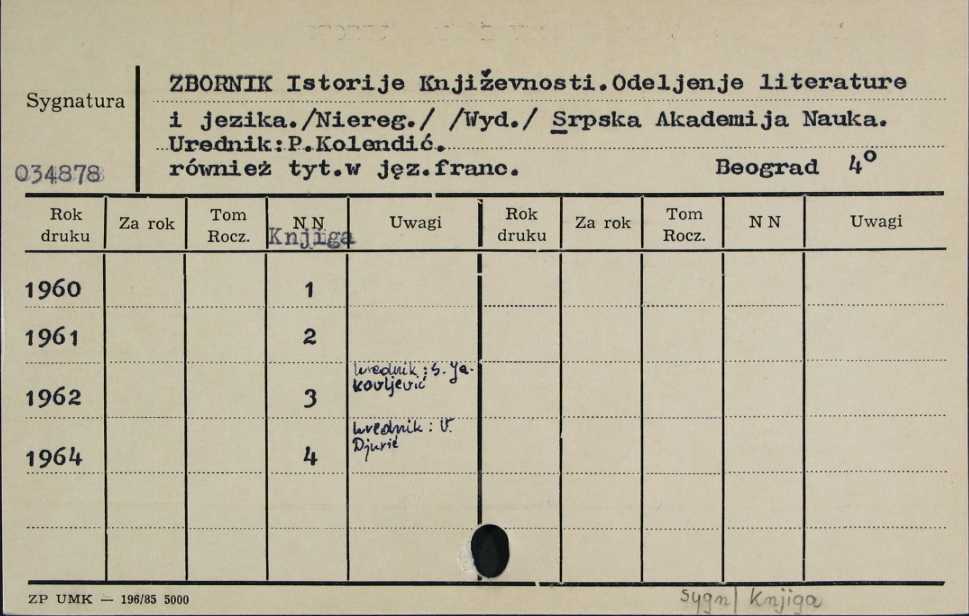 ZBORNIK Istorije Književnosti.Odeljenje literature
Sygnatura
i jezika./Niereg./ /Wyd./ Srpska Akademija Nauka.
Urednik:P.Kolendić.
034878 również tyt.w jęz.franc. Beograd 4º
Rok druku Za rok Tom Rocz. N N Uwagi Rok druku Za rok Tom Rocz. N N Uwagi
Knjiga
1960 1
1961 2
urednik: S. Ja-
kovljević
1962 3
urednik: V.
Djurić
1964 4
ZP UMK — 196/85 5000
sygn/ knjiga